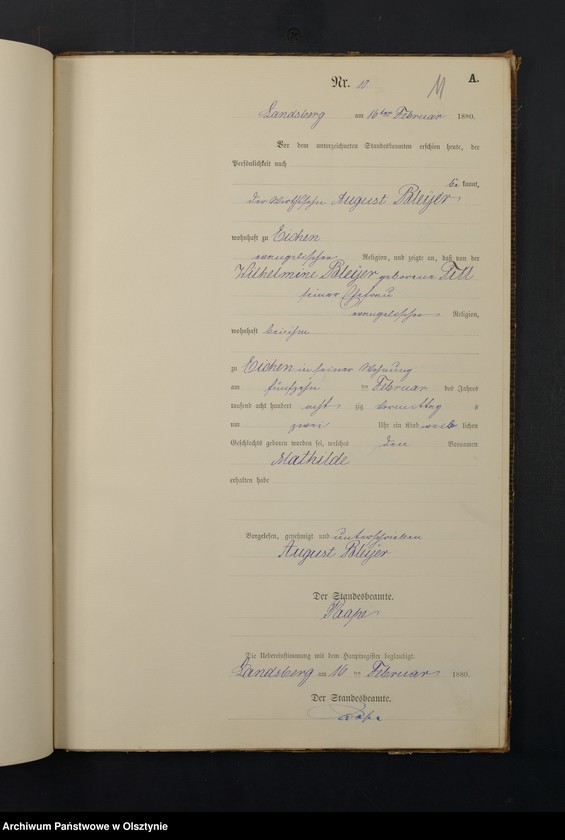 A.
Nr. 10
11
Landsberg am 16ten Februar 1880.
Vor dem unterzeichneten Standesbeamten erschien heute, der
Persönlichkeit nach
be kannt,
der Wirthssohn August Bleyer,
wohnhaft zu Eichen
evangelischer Religion, und zeigte an, daß von der
Wilhelmine Bleyer geborene Tell
seiner Ehefrau
evangelischer Religion,
wohnhaft bei ihm
zu Eichen in seiner Wohnung
am fünfzehn ten Februar des Jahres
tausend acht hundert acht zig Vormittag s
um zwei Uhr ein Kind weib lichen
Geschlechts geboren worden sei, welches den Vornamen
Mathilde
erhalten habe
Vorgelesen, genehmigt und unterschrieben
August Bleyer
Der Standesbeamte.
Paape
Die Uebereinstimmung mit dem Hauptregister beglaubigt.
Landsberg am 16 ten Februar 1880.
Der Standesbeamte.
Paape
Archiwum Państwowe w Olsztynie